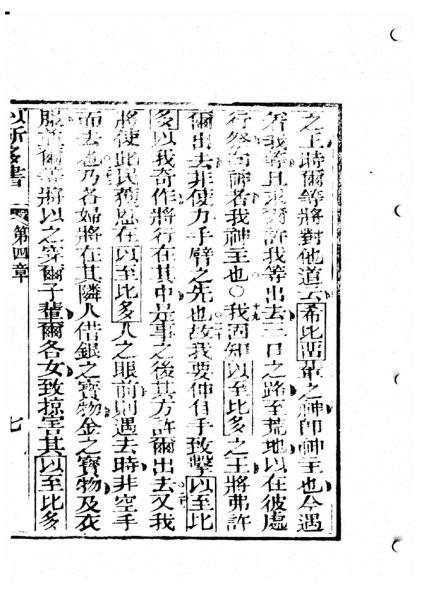 之王時爾等將對他道云希比畱輩之神卽神主也今遇
着我等且求爾許我等出去三日之路至荒地以在彼處
行祭向神者我神主也○十九我固知以至比多之王將弗許
爾出去非使力手臂之先也二十故我要伸自手致擊以至比
多以我奇作將行在其中是事之後其方許爾出去又我
將使此民獲恩在以至比多人之眼前則遇去時非空手
而去也乃各婦將在其隣人借銀之寶物金之寶物及衣
服爾等將以之穿爾子輩爾各女致掠其以至比多
以所多書 第四章 七